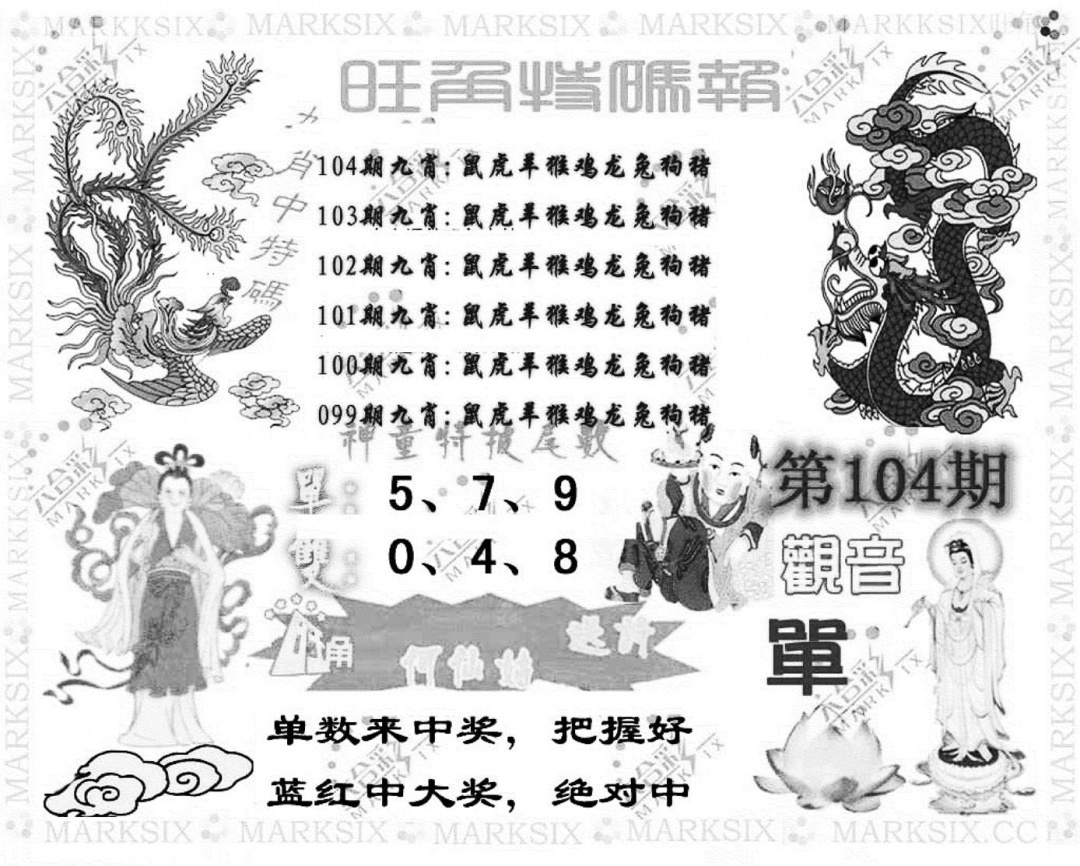 MARKSIX MARKSIX MARKSIX MARKSIX MARKKSIX
旺角特碼報
九肖中特碼
104期九肖: 鼠虎羊猴鸡龙兔狗猪
103期九肖: 鼠虎羊猴鸡龙兔狗猪
102期九肖: 鼠虎羊猴鸡龙兔狗猪
101期九肖: 鼠虎羊猴鸡龙兔狗猪
100期九肖: 鼠虎羊猴鸡龙兔狗猪
099期九肖: 鼠虎羊猴鸡龙兔狗猪
神童特披尾數
單: 5、7、9
雙: 0、4、8
第104期
觀音
單
何仙姑
单数来中奖，把握好
蓝红中大奖，绝对中
MARKSIX MARKSIX MARKSIX MARKSIX MARKSIX.CC